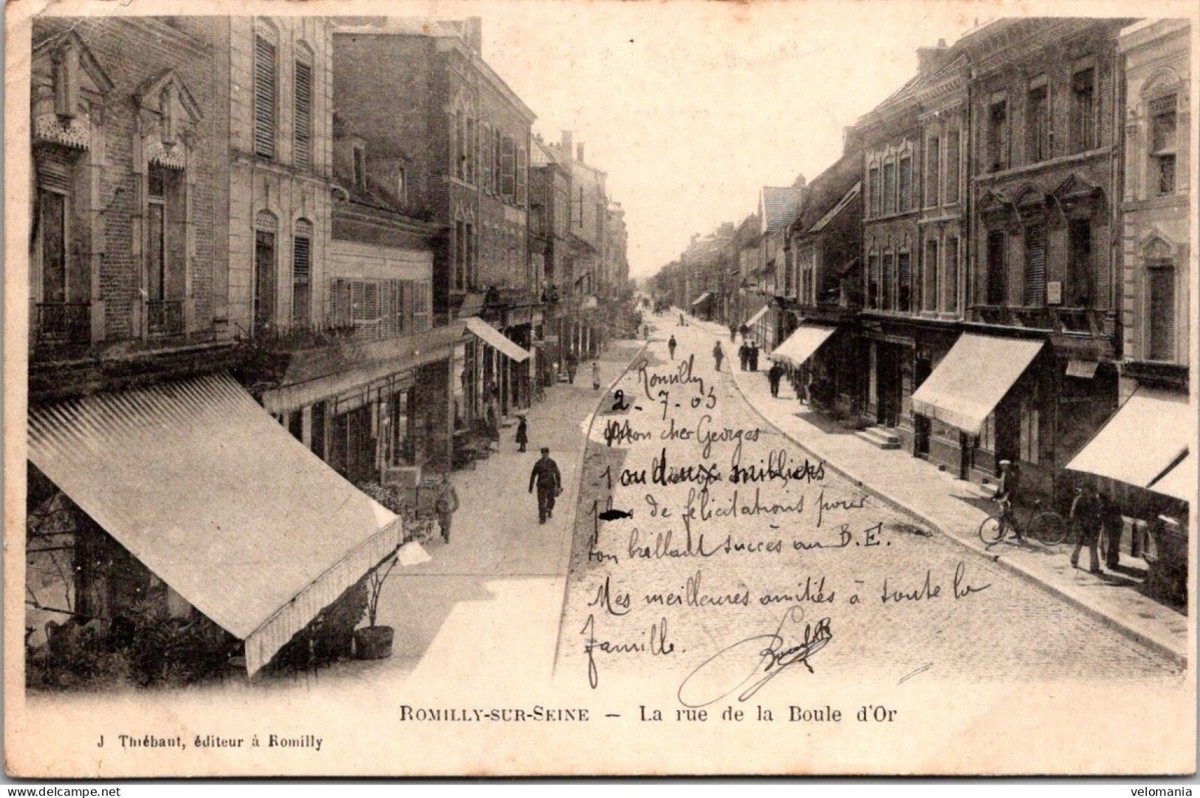 Romilly
2-7-03
Mon cher Georges
1 ou deux milliers
de félicitations pour
ton brillant succès au B.E.
Mes meilleures amitiés à toute la
famille.
ROMILLY-SUR-SEINE – La rue de la Boule d'Or
J Thiébaut, éditeur à Romilly
velomania